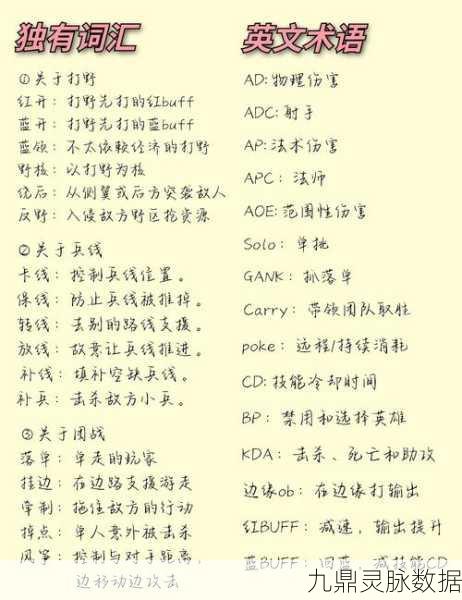 独有词汇
①关于打野
红开：打野先打的红buff
蓝开：打野先打的蓝buff
蓝领：不太依赖经济的打野
野核：以打野为核
绕后：从侧翼或后方突袭敌人
反野：入侵敌方野区抢资源
②关于兵线
卡线：控制兵线位置。
保线：防止兵线被推掉。
转线：去别的路线支援。
放线：故意让兵线推进。
补线：填补空缺兵线。
补兵：击杀敌方小兵。
③关于团战
落单：单走的玩家
挂边：在边路支援游走
牵制：拖住敌方的行动
掉点：单人意外被击杀
风筝：控制与对手距离，
边移动边攻击
英文术语
AD:物理伤害
ADC:射手
AP:法术伤害
APC：法师
AOE:范围性伤害
Solo：单挑
GANK：抓落单
Carry：带领团队取胜
poke：远程/持续消耗
CD:技能冷却时间
BP：禁用和选择英雄
KDA：击杀、死亡和助攻
边缘ob：在边缘打输出
红BUFF：减速，输出提升
蓝BUFF：回蓝，减技能CD
九鼎灵脉数据